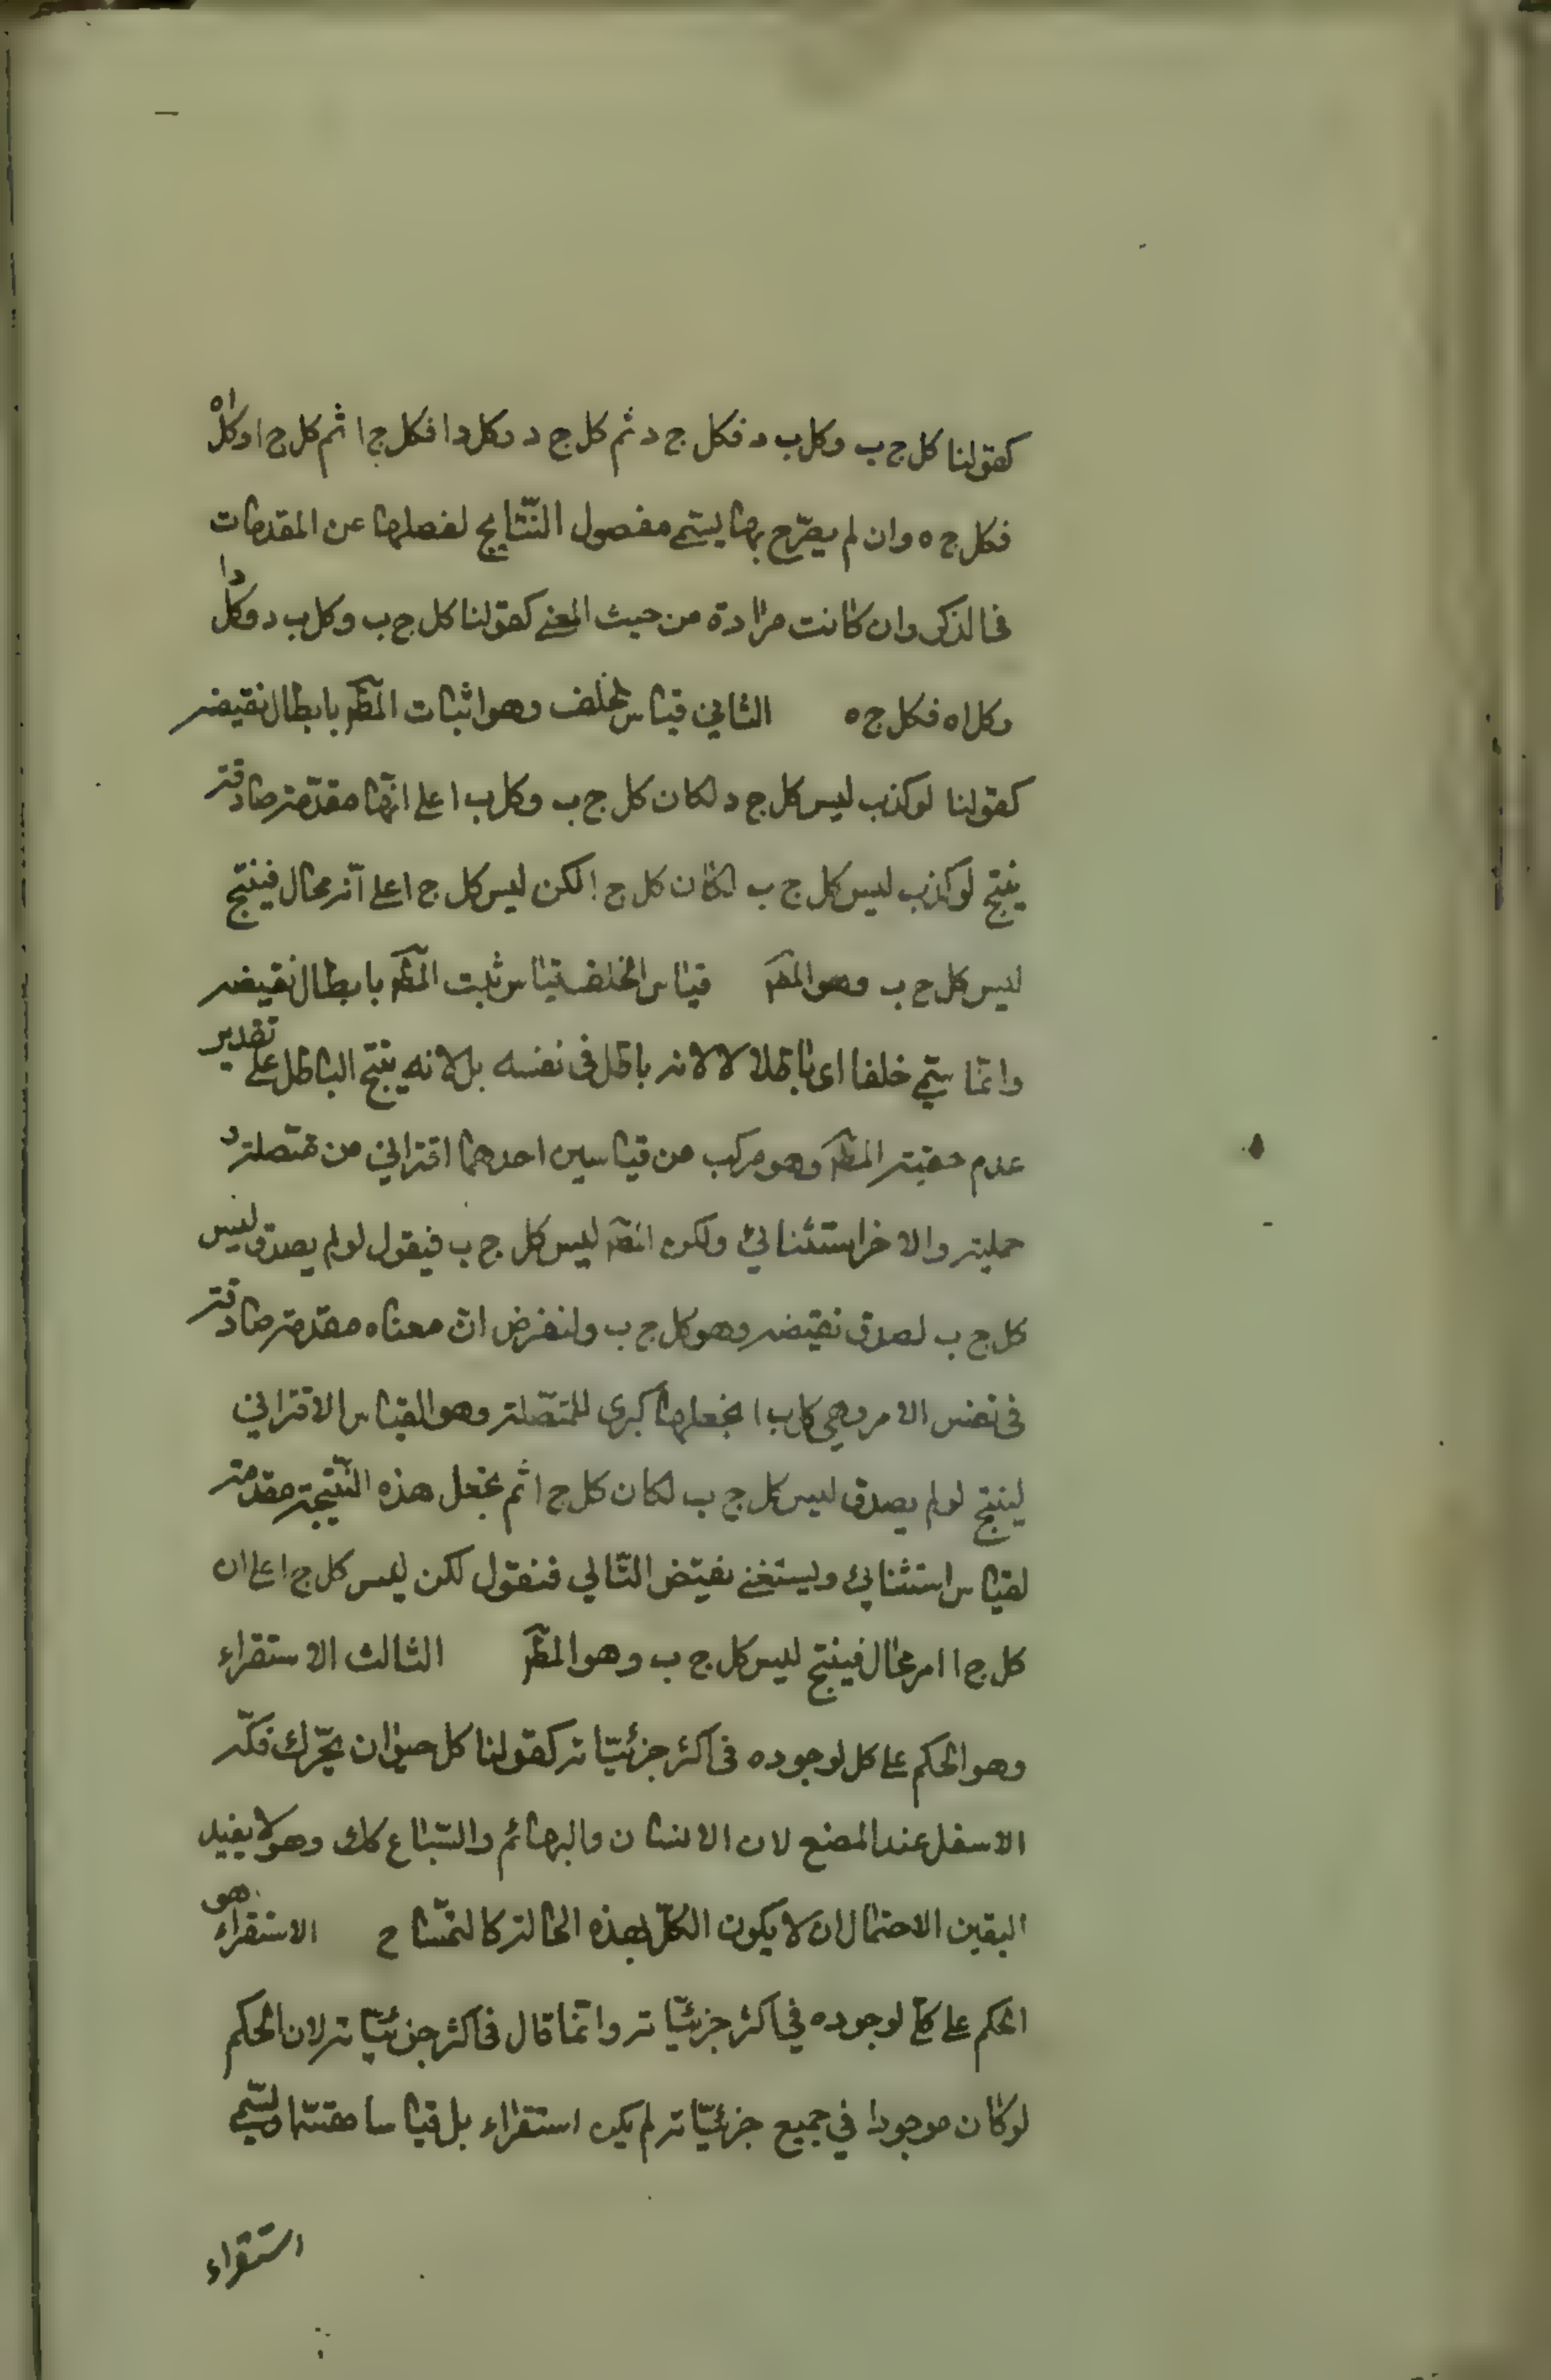 كقولنا كل ج ب وكل ب د فكل ج د ثم كل ج د وكل د ا فكل ج ا ثم كل ج ا وكل ا ه
فكل ج ه وان لم يصرّح بها يسمّى مفصول النّتايج لفصلها عن المقدمات
فى الذكر وان كانت مرادة من حيث المعنى كقولنا كل ج ب وكل ب د وكل د ا
وكل ا ه فكل ج ه الثاني قياس الخلف وهو اثبات المطَ بابطال نقيضه
كقولنا لو كذب ليس كل ج د لكان كل ج ب وكل ب ا على انّها مقدّمة صادقة
ينتج لو كذب ليس كل ج ب لكان كل ج ا لكن ليس كل ج ا على انّه محال فينتج
ليس كل ج ب وهو المطَ قياس الخلف قياس يثبت المطَ بابطال نقيضه
وانّما سمّي خلفا اى باطلا لا لانه باطل فى نفسه بل لانه ينتج الباطل على تقدير
عدم حقية المطَ وهو مركب من قياسين احدهما اقتراني من متصلة و
حملية والاخر استثنائي ولكن المطَ ليس كل ج ب فيقول لو لم يصدق ليس
كل ج ب لصدق نقيضه وهو كل ج ب ولنفرض ان معناه مقدمة صادقة
فى نفس الامر وهي كل ب ا نجعلها كبرى للمتّصلة وهو القياس الاقتراني
لينتج لو لم يصدق ليس كل ج ب لكان كل ج ا ثم نجعل هذه النّتيجة مقدمة
لقياس استثنائي ويستغنى نقيض التّالي فنقول لكن ليس كل ج ا على ان
كل ج ا امر محال فينتج ليس كل ج ب وهو المطَ الثالث الاستقراء
وهو الحكم على كل لوجوده فى اكثر جزئيّاته كقولنا كل حيوان يحّرك فكّه
الاسفل عند المضغ لان الانسان والبهائم والسّباع كك وهو لا يفيد
اليقين الاحتمال ان لا يكون الكلّ بهذه الحالة كالتمّساح الاستقراء هو
الحكم على كلّى لوجوده في اكثر جزئيّاته وانّما قال فى اكثر جزئيّاته لان الحكم
لو كان موجودا في جميع جزئيّاته لم يكن استقراء بل قياسا مقسّما ويسمّى
استقراء